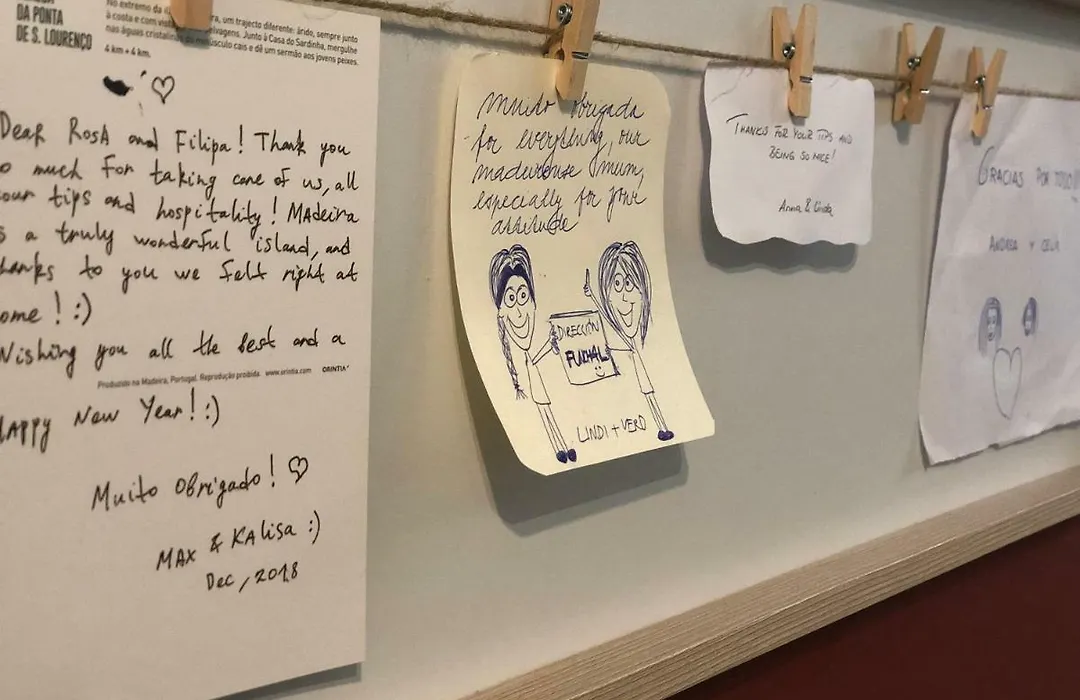 DA PONTA
DE S. LOURENÇO
No extremo da um trajecto diferente: árido, sempre junto
à costa e com vista selvagens. Junto à Casa do Sardinha, mergulhe
nas águas cristalinas minúsculo cais e dê um sermão aos jovens peixes.
4 km + 4 km.
Dear Rosa and Filipa! Thank you
much for taking care of us, all
our tips and hospitality! Madeira
a truly wonderful island, and
thanks to you we felt right at
ome! :)
Wishing you all the best and a
Produzido na Madeira, Portugal. Reprodução proibida. www.orintia.com ORINTIA
Happy New Year! :)
Muito Obrigado!
MAX & KAlisa :)
Dec, 2018
Muito Obrigada
for everything, our
madeirense mum,
especially for your
attitude
DIRECCIÓN
FUNCHAL
LINDI + VERO
THANKS FOR YOUR TIPS AND
BEING SO NICE!
Anna & Linda
GRACIAS POR TODO!
ANDREA Y CELIA